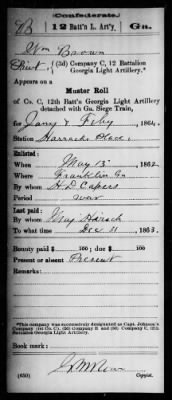 Confederate.
B 12 Batt'n L. Art'y. Ga.
Wm Brown
Privt., (3d) Company C, 12 Battalion
Georgia Light Artillery.*
Appears on a
Muster Roll
of Co. C, 12th Batt'n Georgia Light Artillery
detached with Ga. Siege Train,
for Jany & Feby, 1864.
Station Place,
Enlisted:
When May 13, 1862.
Where Franklin Ga
By whom H D Capers
Period war
Last paid:
By whom Maj Hirsch
To what time Dec 11, 1863.
Bounty paid $ 100; due $ 100
Present or absent Present
Remarks:
*This company was successively designated as Capt. Johnson's
Company
Book mark:
(650) Copyist.